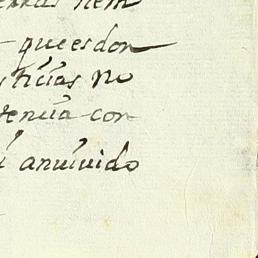 nem
que es don
sticias no
venua con
anuiuido